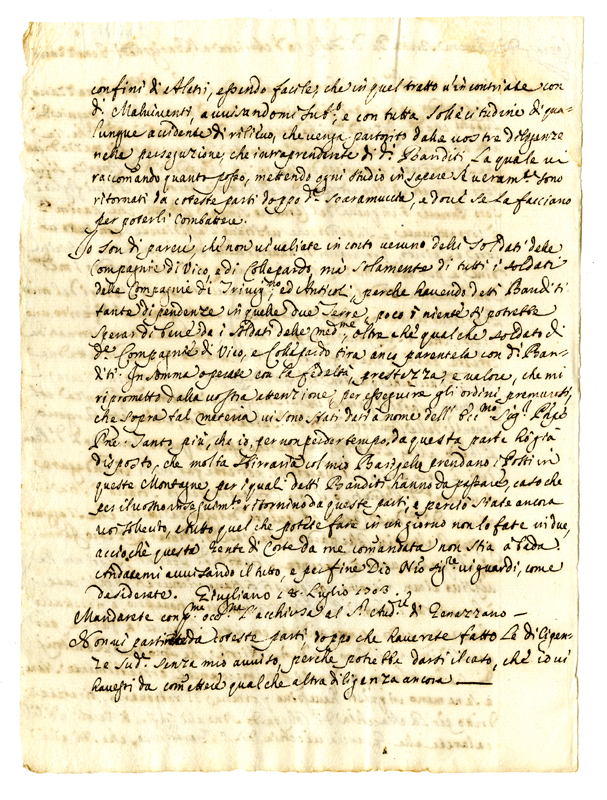 confini di Alatri, essendo facile, che in quel tratto v'incontriate con
d.i Malviventi, avvisandomi sub.o, e con tutta sollecitudine di qua-
lunque accidente di rilievo, che venga partorito dalle vostre diligenze
nella persecuzione, che intraprenderete di d.i Banditi. La quale vi
raccomando quanto posso, mettendo ogni studio in sapere se veram.te sono
ritornati da coteste parti doppo d.a Scaramuccia, e dove se la facciano
per poterli combattere.
Io son di parere, che non vi valiate in conto veruno delli soldati delle
Compagnie di Vico, e di Collepardo, mà solamente di tutti i soldati
delle Compagnie di Trivig.no, ed Anticoli, perche havendo detti Banditi
tante dipendenze in quelle due Terre, poco ò niente si potrebbe
sperar di bene da i soldati delle med.me, oltre che qualche soldato di
d.e Compagnie di Vico, e Collepardo tira anco parentela con d.i Ban-
diti. In somma operate con la fedeltà, prestezza, e valore, che mi
riprometto dalla vostra attenzione, per esseguire gli ordini premurosi,
che sopra tal materia vi sono stati dati a nome dell' Ecc.mo Sig.r
Pne. Tanto più, che io, per non perder tempo, da questa parte hò già
disposto, che molta sbirraria col mio Barigello prendano i Posti in
queste Montagne, per i quali detti Banditi hanno da passare, caso che
per il vostro inseguim.to ritornino da queste parti, e perciò state ancora
voi sollecito, e tutto quel che potete fare in un giorno non lo fate in due,
acciò che questa gente di Corte da me comandata non stia à bada.
Andatemi avvisando il tutto, e per fine Dio N'ro Sig.re vi guardi, come
desiderate. Giugliano 18. Luglio 1703.
Mandarete con p.ma occ.ne l'acchiusa al S.r Aud.re di Genazzano —
Non vi partirete da coteste parti, doppo che haverete fatto le diligen-
ze sud.e senza mio avviso, perche potrebbe darsi il caso, che io vi
havessi da commettere qualche altra diligenza ancora —